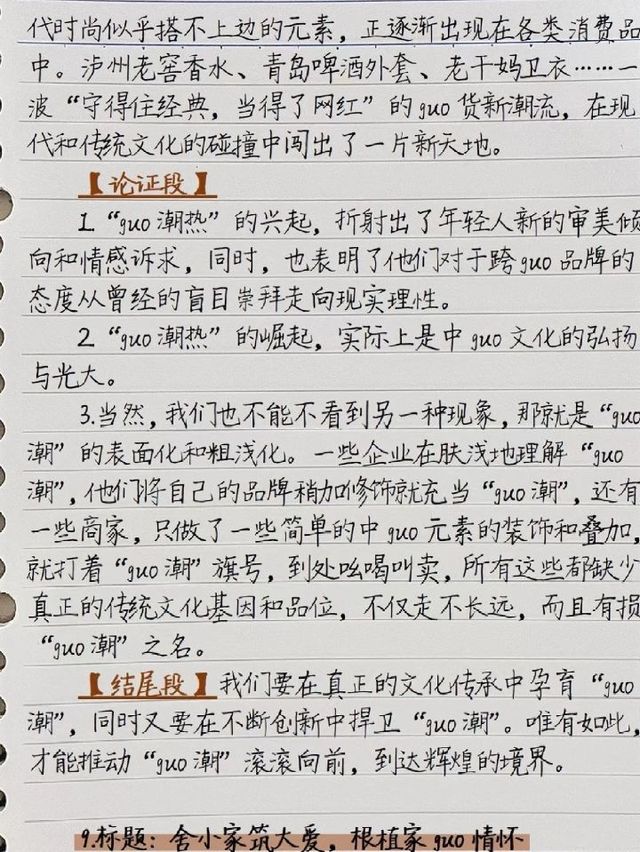 代时尚似乎搭不上边的元素，正逐渐出现在各类消费品
中。泸州老窖香水、青岛啤酒外套、老干妈卫衣……一
波“守得住经典，当得了网红”的guo货新潮流，在现
代和传统文化的碰撞中闯出了一片新天地。
【论证段】
1.“guo潮热”的兴起，折射出了年轻人新的审美倾
向和情感诉求，同时，也表明了他们对于跨guo品牌的
态度从曾经的盲目崇拜走向现实理性。
2.“guo潮热”的崛起，实际上是中guo文化的弘扬
与光大。
3.当然，我们也不能不看到另一种现象，那就是“guo
潮”的表面化和粗浅化。一些企业在肤浅地理解“guo
潮”，他们将自己的品牌稍加修饰就充当“guo潮”，还有
一些商家，只做了一些简单的中guo元素的装饰和叠加，
就打着“guo潮”旗号，到处吆喝叫卖，所有这些都缺少
真正的传统文化基因和品位，不仅走不长远，而且有损
“guo潮”之名。
【结尾段】我们要在真正的文化传承中孕育“guo
潮”，同时又要在不断创新中捍卫“guo潮”。唯有如此，
才能推动“guo潮”滚滚向前，到达辉煌的境界。
9.标题：舍小家筑大爱，根植家guo情怀